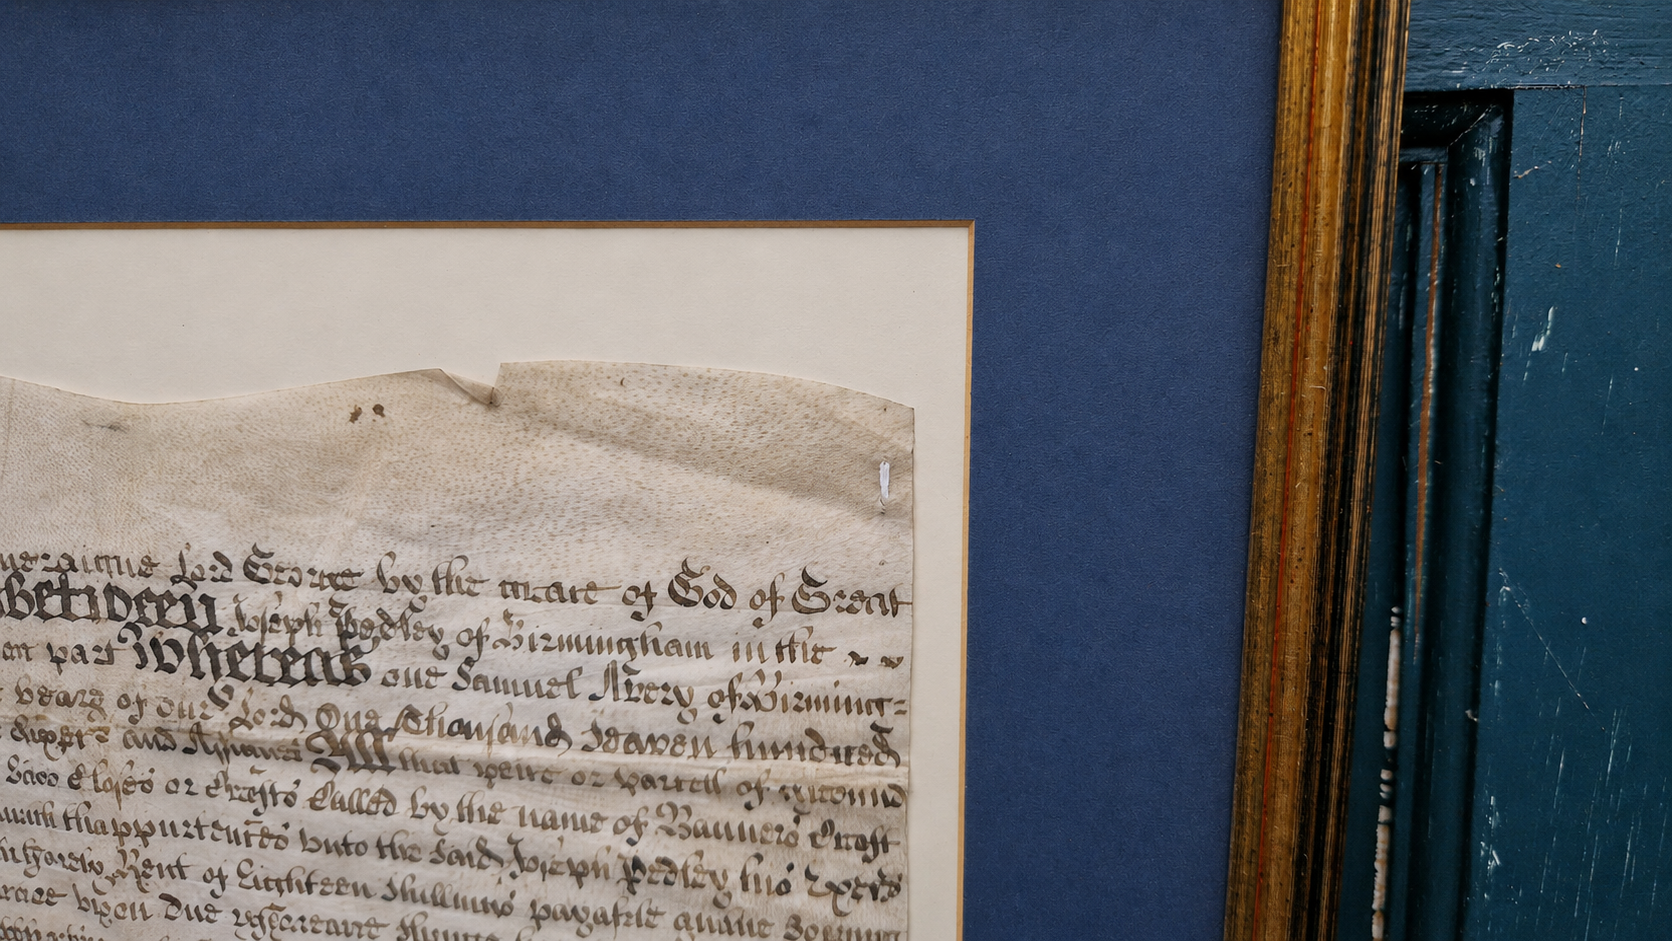 Lord George by the grace of God of Great
Between Joseph Pedley of Birmingham in the
part Whereas one Samuel Avery of Birming=
yeare of our Lord One Thousand Seaven hundred
and Assignes All that peice or parcell of ground
Closes or Crofts Called by the name of Banners Croft
with thappurtences unto the said Joseph Pedley his Exers
Rent of Eighteen Shillings payable
upon Due